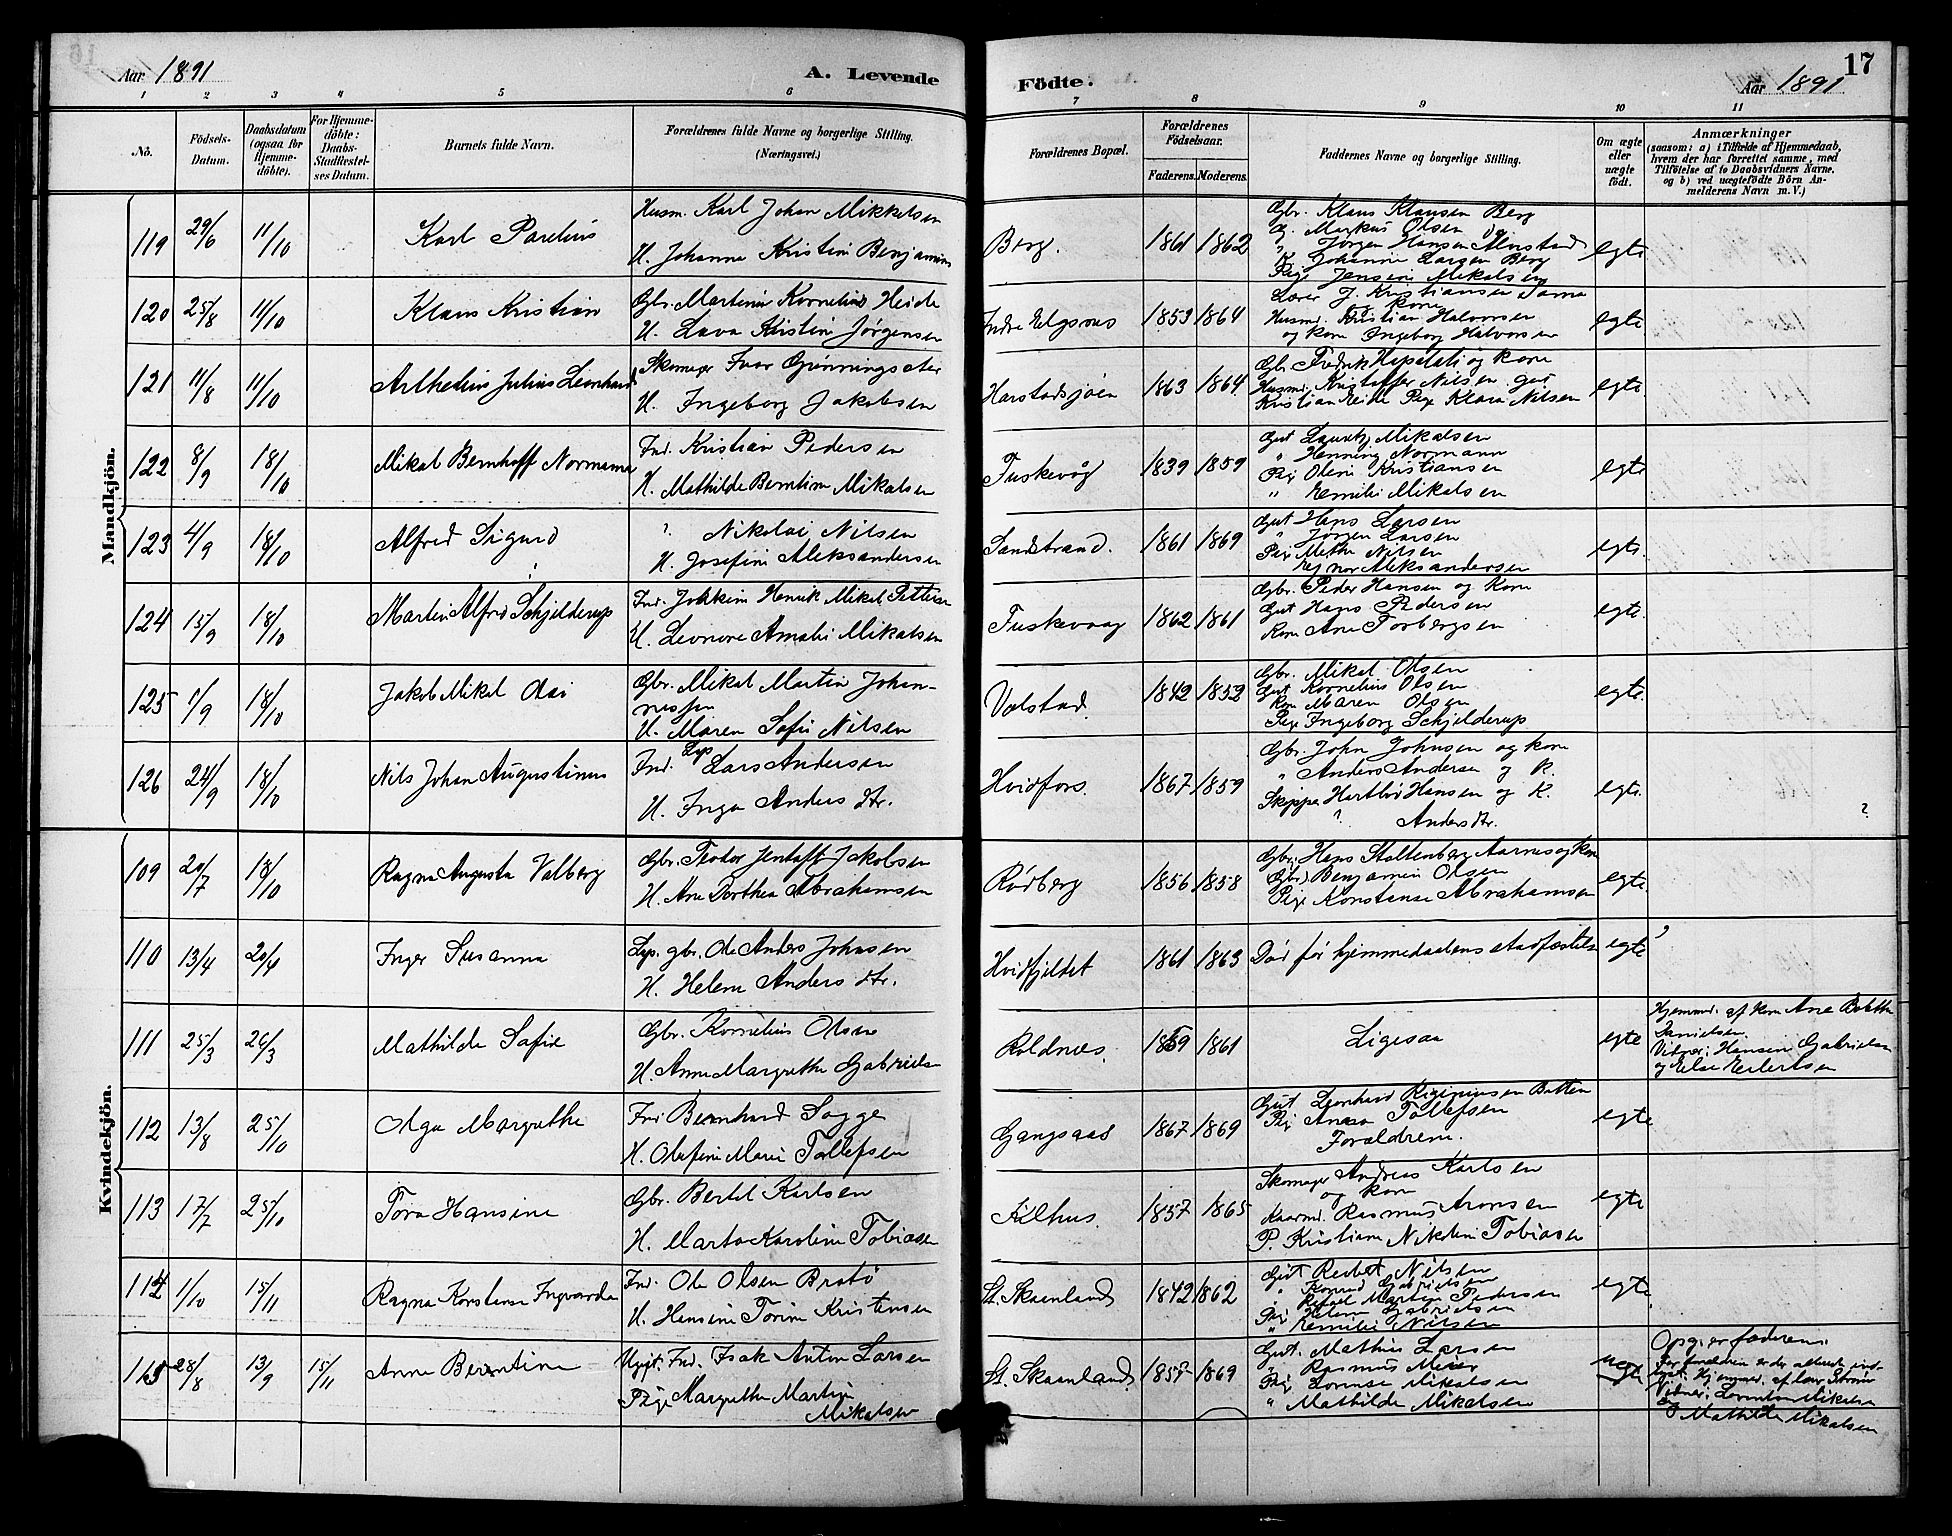 Aar 1891
A. Levende
Födte.
17
Aar 1891
1 2 3 4 5 6 7 8 9 10 11
Nö.
Födsels-
Datum.
Daabsdatum
(ogsaa for
Hjemme-
döbte).
For Hjemme-
döbte:
Daabs-
Stadfæstel-
ses Datum.
Barnets fulde Navn.
Forældrenes fulde Navne og borgerlige Stilling.
(Næringsvei.)
Forældrenes Bopæl.
Forældrenes
Födselsaar.
Faderens. Moderens.
Faddernes Navne og borgerlige Stilling.
Om ægte
eller
uægte
födt.
Anmærkninger
(saasom: a) i Tilfælde af Hjemmedaab,
hvem der har forrettet samme, med
Tilföielse af to Daabsvidners Navne.
og b) ved uægtefödte Börn An-
melderens Navn m. V.)
Mandkjön.
119 29/6 11/10 Karl Parelius
Husm. Karl Johan Mikkelsen
H. Johanna Kristine Benjamins
Berg. 1861 1862
Gbr. Klaus Klausen Berg
G. Markus Olsen og
" Jørgen Hansen
K. Johanne Larsen Berg
Pige Jensine Mikalsen
egte
120 25/8 11/10 Klaus Kristian
Gbr. Martinus Kornelius Heide
H. Lava Kristin Jörgensen
Indre Elgsnes 1853 1864
Lærer J. Kristiansen
og kone
Husmd. Kristian Halvorsen
og kone Ingeborg Halvorsen
egte
121 11/8 11/10 Arthelius Julius Leonhard
Skomager Ivar Grönningsæter
H. Ingeborg Jakobsen
Harstadsjøen 1863 1864
Gbr. Fredrik og kone
Husmd. Kristoffer Nilsen. gut
Kristian Heide Pige Klara Nilsen
egte.
122 8/9 18/10 Mikal Bernhoff Normann
Ind. Kristian Pedersen
H. Mathilde Berntine Mikalsen
Fuskevåg 1839 1859
Gut Lauritz Mikalsen
" Henning Normann
Pige Oline Kristiansen
" Emilie Mikalsen
egte
123 4/9 18/10 Alfred Sigurd
? Nikolai Nilsen
H. Josefine Aleksandersen
Sandstrand. 1861 1869
Gut Hans Larsen
" Jörgen Larsen
Pige Methe Nilsen
Aleksandersen
egte.
124 15/9 18/10 Martin Alfred Schjelderup
Ind. Jokkim Henrik Mikal Pettersen
H. Leonore Amalie Mikalsen
Fuskevaag 1862 1861
Gbr. Peder Hansen og Kone
Gut Hans Pedersen
Kone Ane Torbergsen
egte.
125 1/9 18/10 Jakob Mikal Olai
Gbr. Mikal Martin Johan-
nessen
H. Maren Sofie Nilsen
Volstad. 1842 1852
Gbr. Mikal Olsen
Gut Kornelius Olsen
Kone Maren Olsen
Pige Ingeborg Schjelderup
egte.
126 24/9 18/10 Nils Johan Augustinus
Ind. Lap Lars Andersen
H. Inga Anders dtr.
Hvidfors. 1867 1859
Gbr. John Johnsen og kone
" Anders Andersen og K.
Skipper Hartlvig Hansen og K.
? Anders dtr.
egte. ?
Kvindekjön.
109 20/7 18/10 Ragna Augusta Valberg
Gbr. Teodor Jentoft Jakobsen
H. Ane Dorthea Abrahamsen
Rødberg 1856 1858
Gbr. Hans Stoltenberg Aarnes og kone
Gbr. Benjamin Olsen
Pige Konstanse Abrahamsen
egte
110 13/4 20/4 Inger Susanna
Lap. gbr. Ole Anders Johnsen
H. Helene Anders dtr.
Hvidfjeldet 1861 1863
Død før hjemmedaabens stadfæstelse
egte ?
111 25/3 26/3 Mathilde Sofie
Gbr. Kornelius Olsen
H. Anne Margrethe Gabrielsen
Roldnes. 1859 1861
Ligesaa
egte
Hjemmd. af kone Ane
Danielsen.
Vidner: Hansen Gabrielsen
og Else Eilertsen
112 13/8 25/10 Olga Margrethe
Ind Bernhard Sagge
H. Olefine Marie Tollefsen
Gangsaas 1867 1869
Gut Leonhard Batten
Pige Anna Tollefsen
Forældrene.
egte
113 17/7 25/10 Tora Hansine
Gbr. Bertel Karlsen
H. Marta Karoline Tobiasen
Kilhus. 1857 1865
Skomager Andreas Karlsen
og kone
Kaarmd. Rasmus Aronsen
P. Kristiane Nikoline Tobiasen
egte
114 1/10 15/11 Ragna Konstanse Ingvarda
Ind. Ole Olsen Bratø
H. Hansine Torine Kristensen
St. Skaanland 1842 1862
Gut Reibet Nilsen
" Konrad Gabrielsen
" Martin Pedersen
Pige Helene Gabrielsen
" Emilie Nilsen
egte.
115 28/8 13/9 15/11 Anne Berntine
Ugift. Ind. Isak Anton Larsen
Pige Margrethe Martine
Mikalsen
St. Skaanland. 1857 1869
Gut. Mathis Larsen
" Rasmus Meier
Pige Lorense Mikalsen
" Mathilde Mikalsen
uegte
Opg. er faderen.
Vidner:
Mathilde Mikalsen